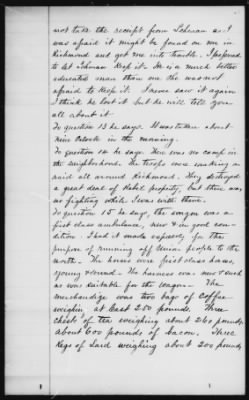 not take the receipt from Lehman as I
was afraid it might be found on me in
Richmond and get me into trouble. I prefered
to let Lehman keep it. He is a much better
educated man than me & he was not
afraid to keep it. I never saw it again
I think he lost it but he will tell you
all about it
To question 13 he says. It was taken about
nine O'clock in the morning.
To question 14 he says. There was no camp in
the neighborhood. The troops were making a
raid all around Richmond. They destroyed
a great deal of Rebel property, but there was
no fighting while I was with them.
To question 15 he says, the wagon was a
first class ambulance, new & in good con-
dition. I had it made expressly for the
purpose of running off Union people to the
north. The horses were first class horses,
young & sound. The harness was new & such
as was suitable for the wagon. The
merchandize was two bags of coffee
weighing at least 200 pounds. Three
chests of tea weighing about 240 pounds
about 600 pounds of bacon. Three
Kegs of Lard weighing about 200 pounds